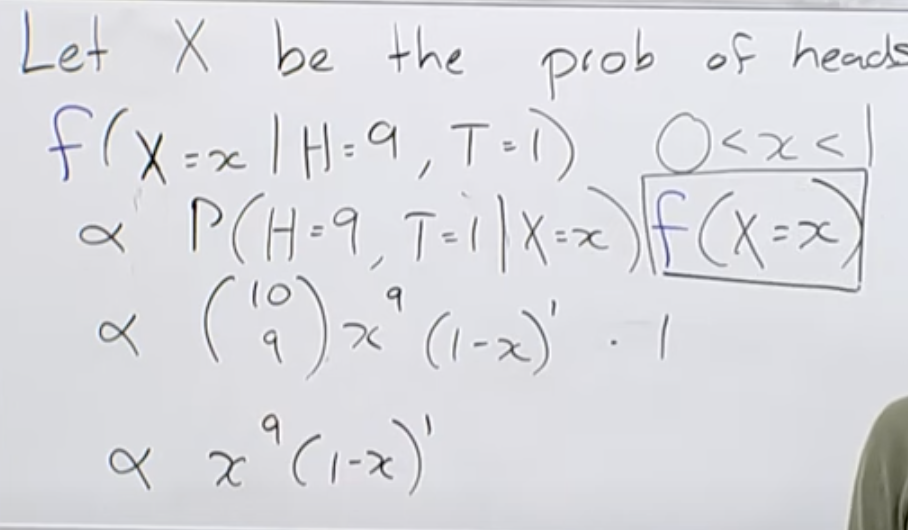 Let X be the prob of heads
f(X=x | H=9, T=1) 0<x<1
∝ P(H=9, T=1 | X=x) f(X=x)
∝ (10 9) x⁹ (1-x)¹ · 1
∝ x⁹ (1-x)¹